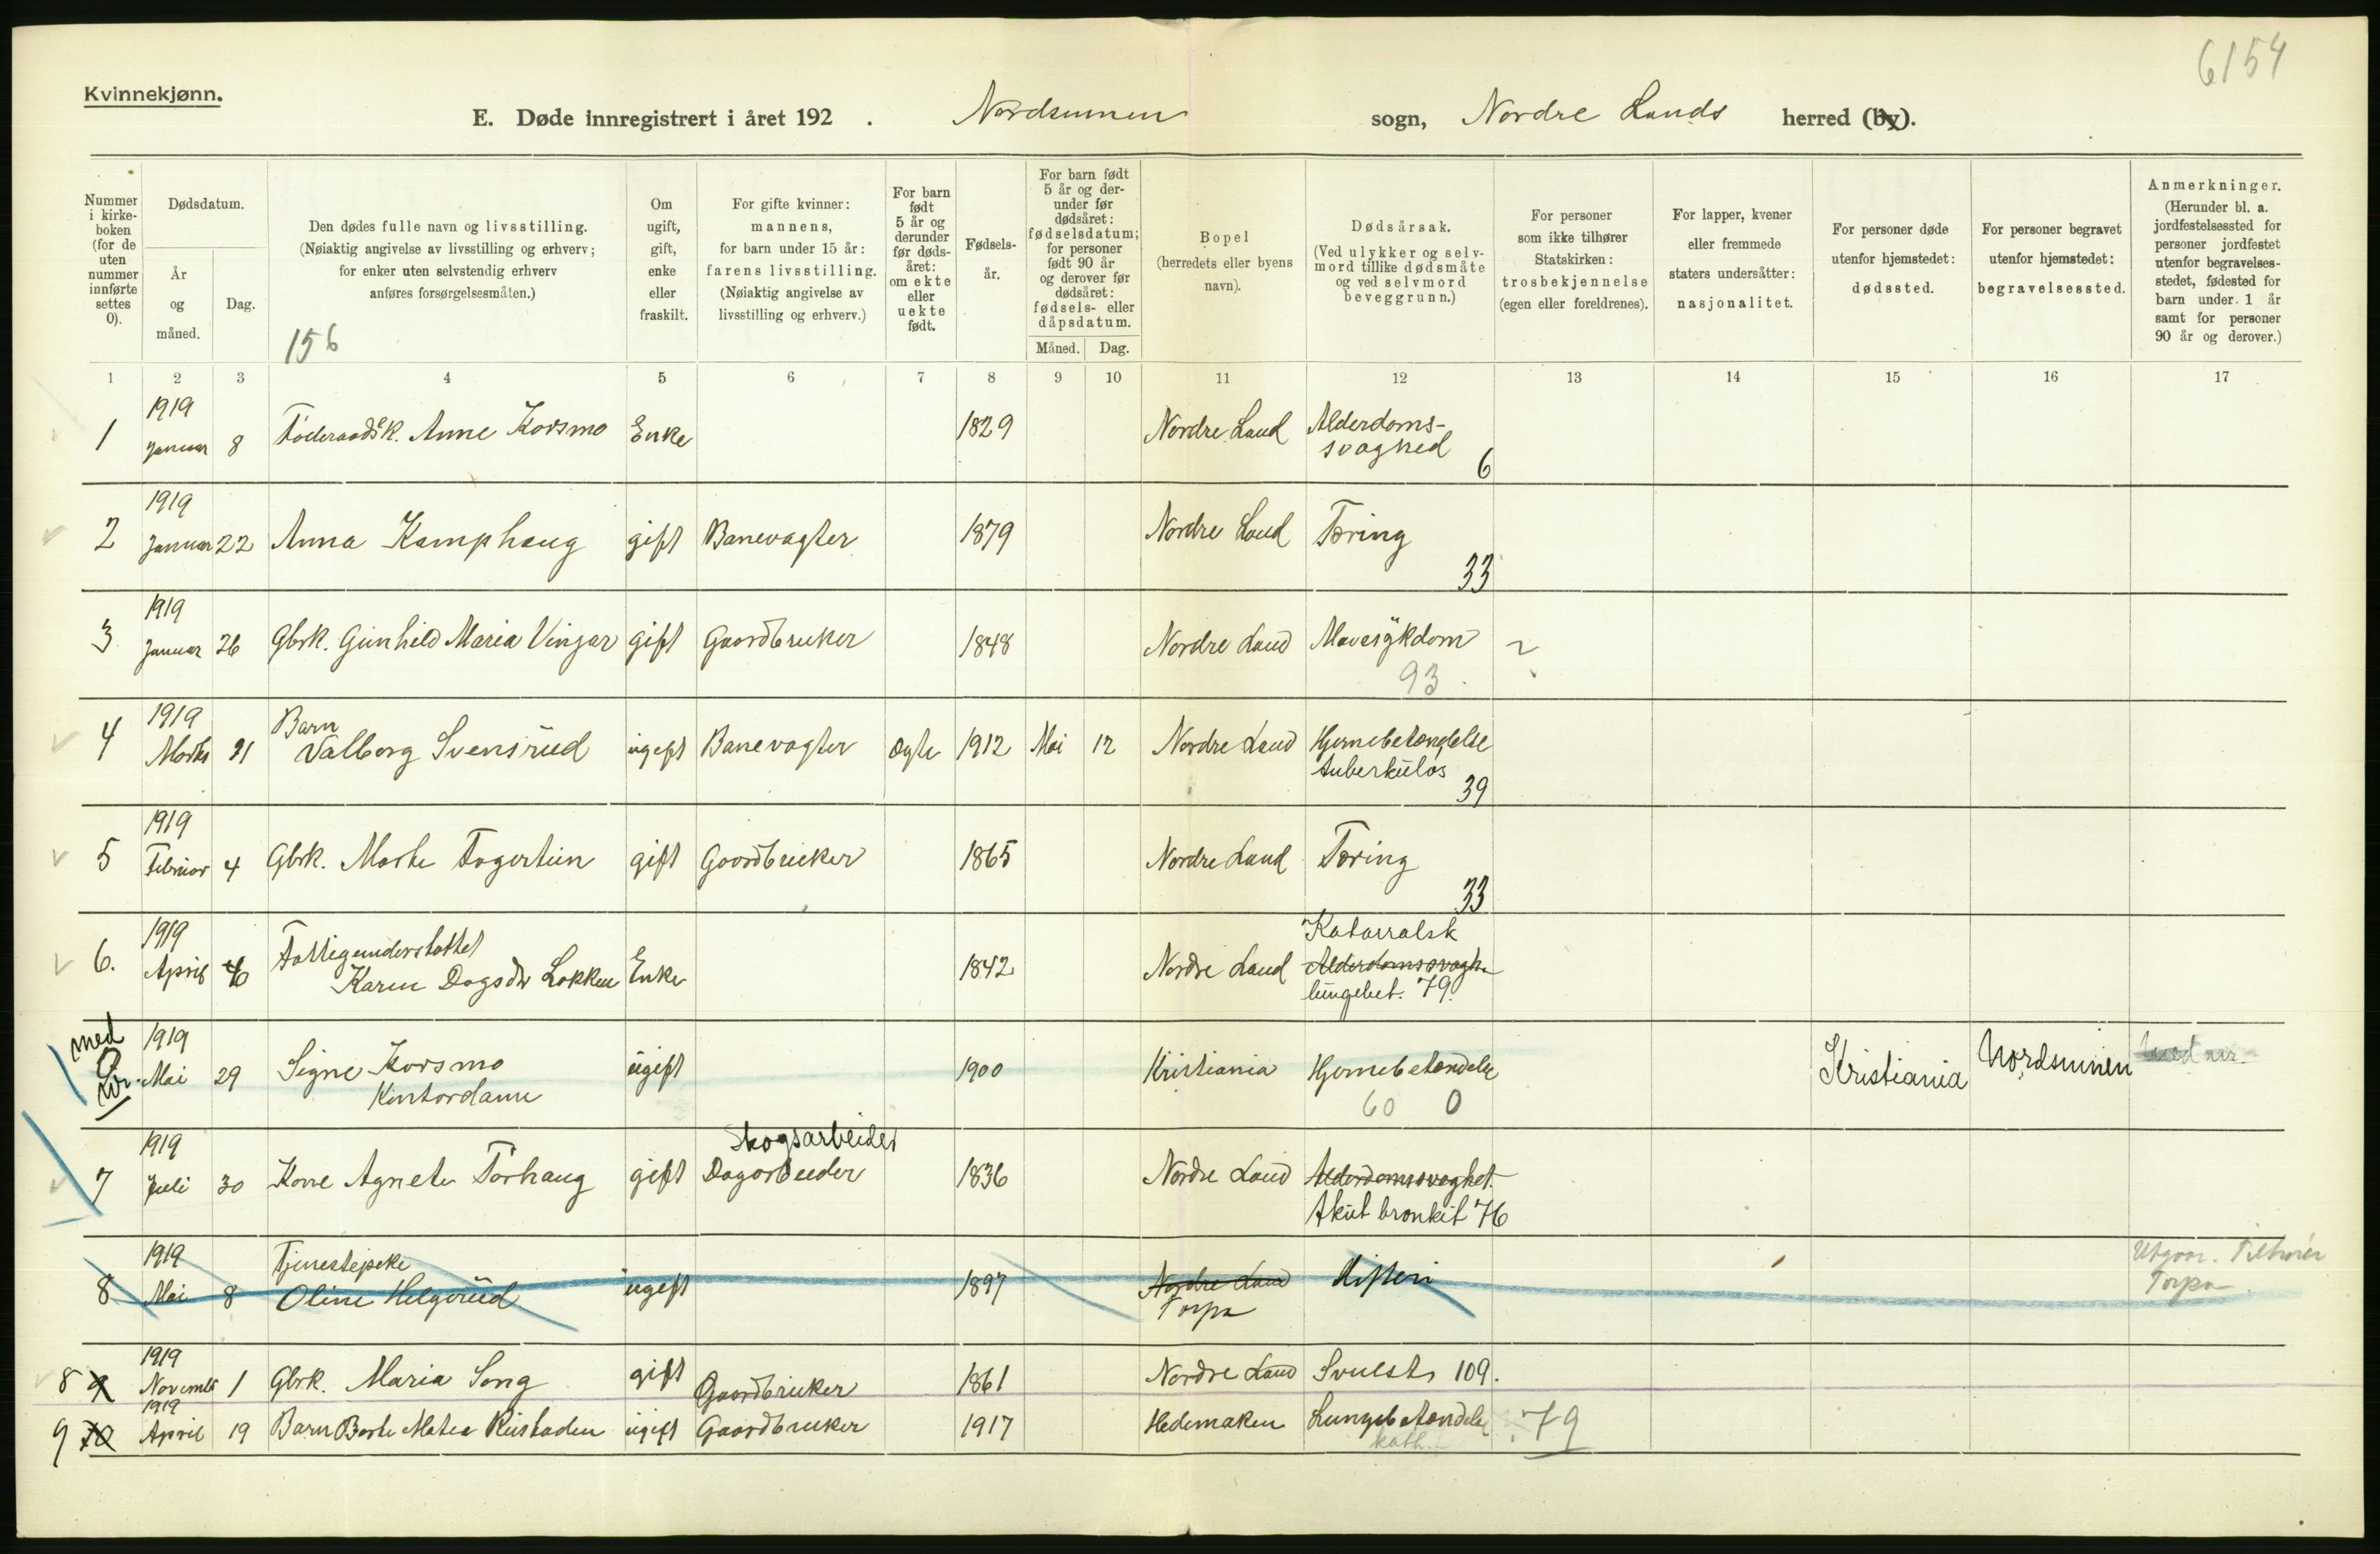 6154
Kvinnekjønn.
E. Døde innregistrert i året 192 . Nordsinnen sogn, Nordre Lands herred (by).
Nummer i kirkeboken (for de uten nummer innførte settes 0).
Dødsdatum.
År og måned.
Dag.
Den dødes fulle navn og livsstilling.
(Nøiaktig angivelse av livsstilling og erhverv;
for enker uten selvstendig erhverv
anføres forsørgelsesmåten.)
156
Om ugift, gift, enke eller fraskilt.
For gifte kvinner:
mannens,
for barn under 15 år:
farens livsstilling.
(Nøiaktig angivelse av
livsstilling og erhverv.)
For barn født 5 år og derunder før dødsåret: om ekte eller uekte født.
Fødselsår.
For barn født 5 år og derunder før dødsåret: fødselsdatum; for personer født 90 år og derover før dødsåret: fødsels- eller dåpsdatum.
Måned. Dag.
Bopel
(herredets eller byens
navn).
Dødsårsak.
(Ved ulykker og selvmord tillike dødsmåte og ved selvmord beveggrunn.)
For personer
som ikke tilhører
Statskirken:
trosbekjennelse
(egen eller foreldrenes).
For lapper, kvener
eller fremmede
staters undersåtter:
nasjonalitet.
For personer døde
utenfor hjemstedet:
dødssted.
For personer begravet
utenfor hjemstedet:
begravelsessted.
Anmerkninger.
(Herunder bl. a. jordfestelsessted for personer jordfestet utenfor begravelsesstedet, fødested for barn under 1 år samt for personer 90 år og derover.)
1 2 3 4 5 6 7 8 9 10 11 12 13 14 15 16 17
1 1919 Januar 8 Føderaadsk. Anne Korsmo Enke 1829 Nordre Land Alderdoms-
svaghed 6
2 1919 Januar 22 Anna Kamphaug gift Banevagter 1879 Nordre Land Tæring
33
3 1919 Januar 26 Gbrk. Gunhild Maria Vingar gift Gaardbruker 1848 Nordre Land Mavesykdom
93
4 1919 Marts 21 Barn
Valborg Svensrud ugift Banevagter ægte 1912 Mai 12 Nordre Land Hjernebetændelse
tuberkuløs
39
5 1919 Februar 4 Gbrk. Marte gift Gaardbruker 1865 Nordre Land Tæring
33
6. 1919 April Fattigunderstøttet
Karen Dagsdtr Løkken Enke 1842 Nordre Land Katarralsk
Alderdomssvagh.
lungebet. 79.
med 0 nr. 1919 Mai 29 Signe Korsmo
Kontordame ugift 1900 Kristiania Hjernebetændelse
60 0 Kristiania Nordsinnen
7 1919 Juli 30 Kone Agnete Tørhaug gift Skogsarbeider
Dagarbeider 1836 Nordre Land Alderdomssvaghet.
Akut bronkit 76
8 1919 Mai 8 Tjenestepike
Oline Helgerud ugift 1897 Nordre Land
Torpa Difteri Utgaar. Tilhører
Torpa
8 9 1919 November 1 Gbrk. Maria Song gift Gaardbruker 1861 Nordre Land Svulst 109.
9 10 1919 April 19 Barn Marte Matea Rustaden ugift Gaardbruker 1917 Hedemarken Lungebetændelse 79
kath.